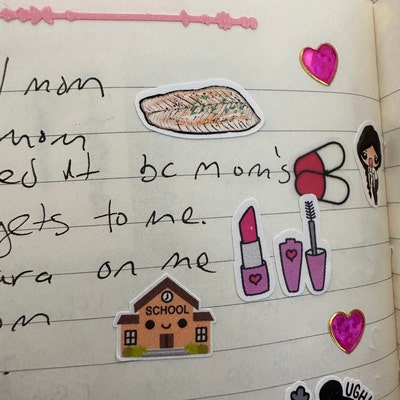 mom
mom
ed it bc mom's
gets to me.
ara on me
SCHOOL
om
UGH